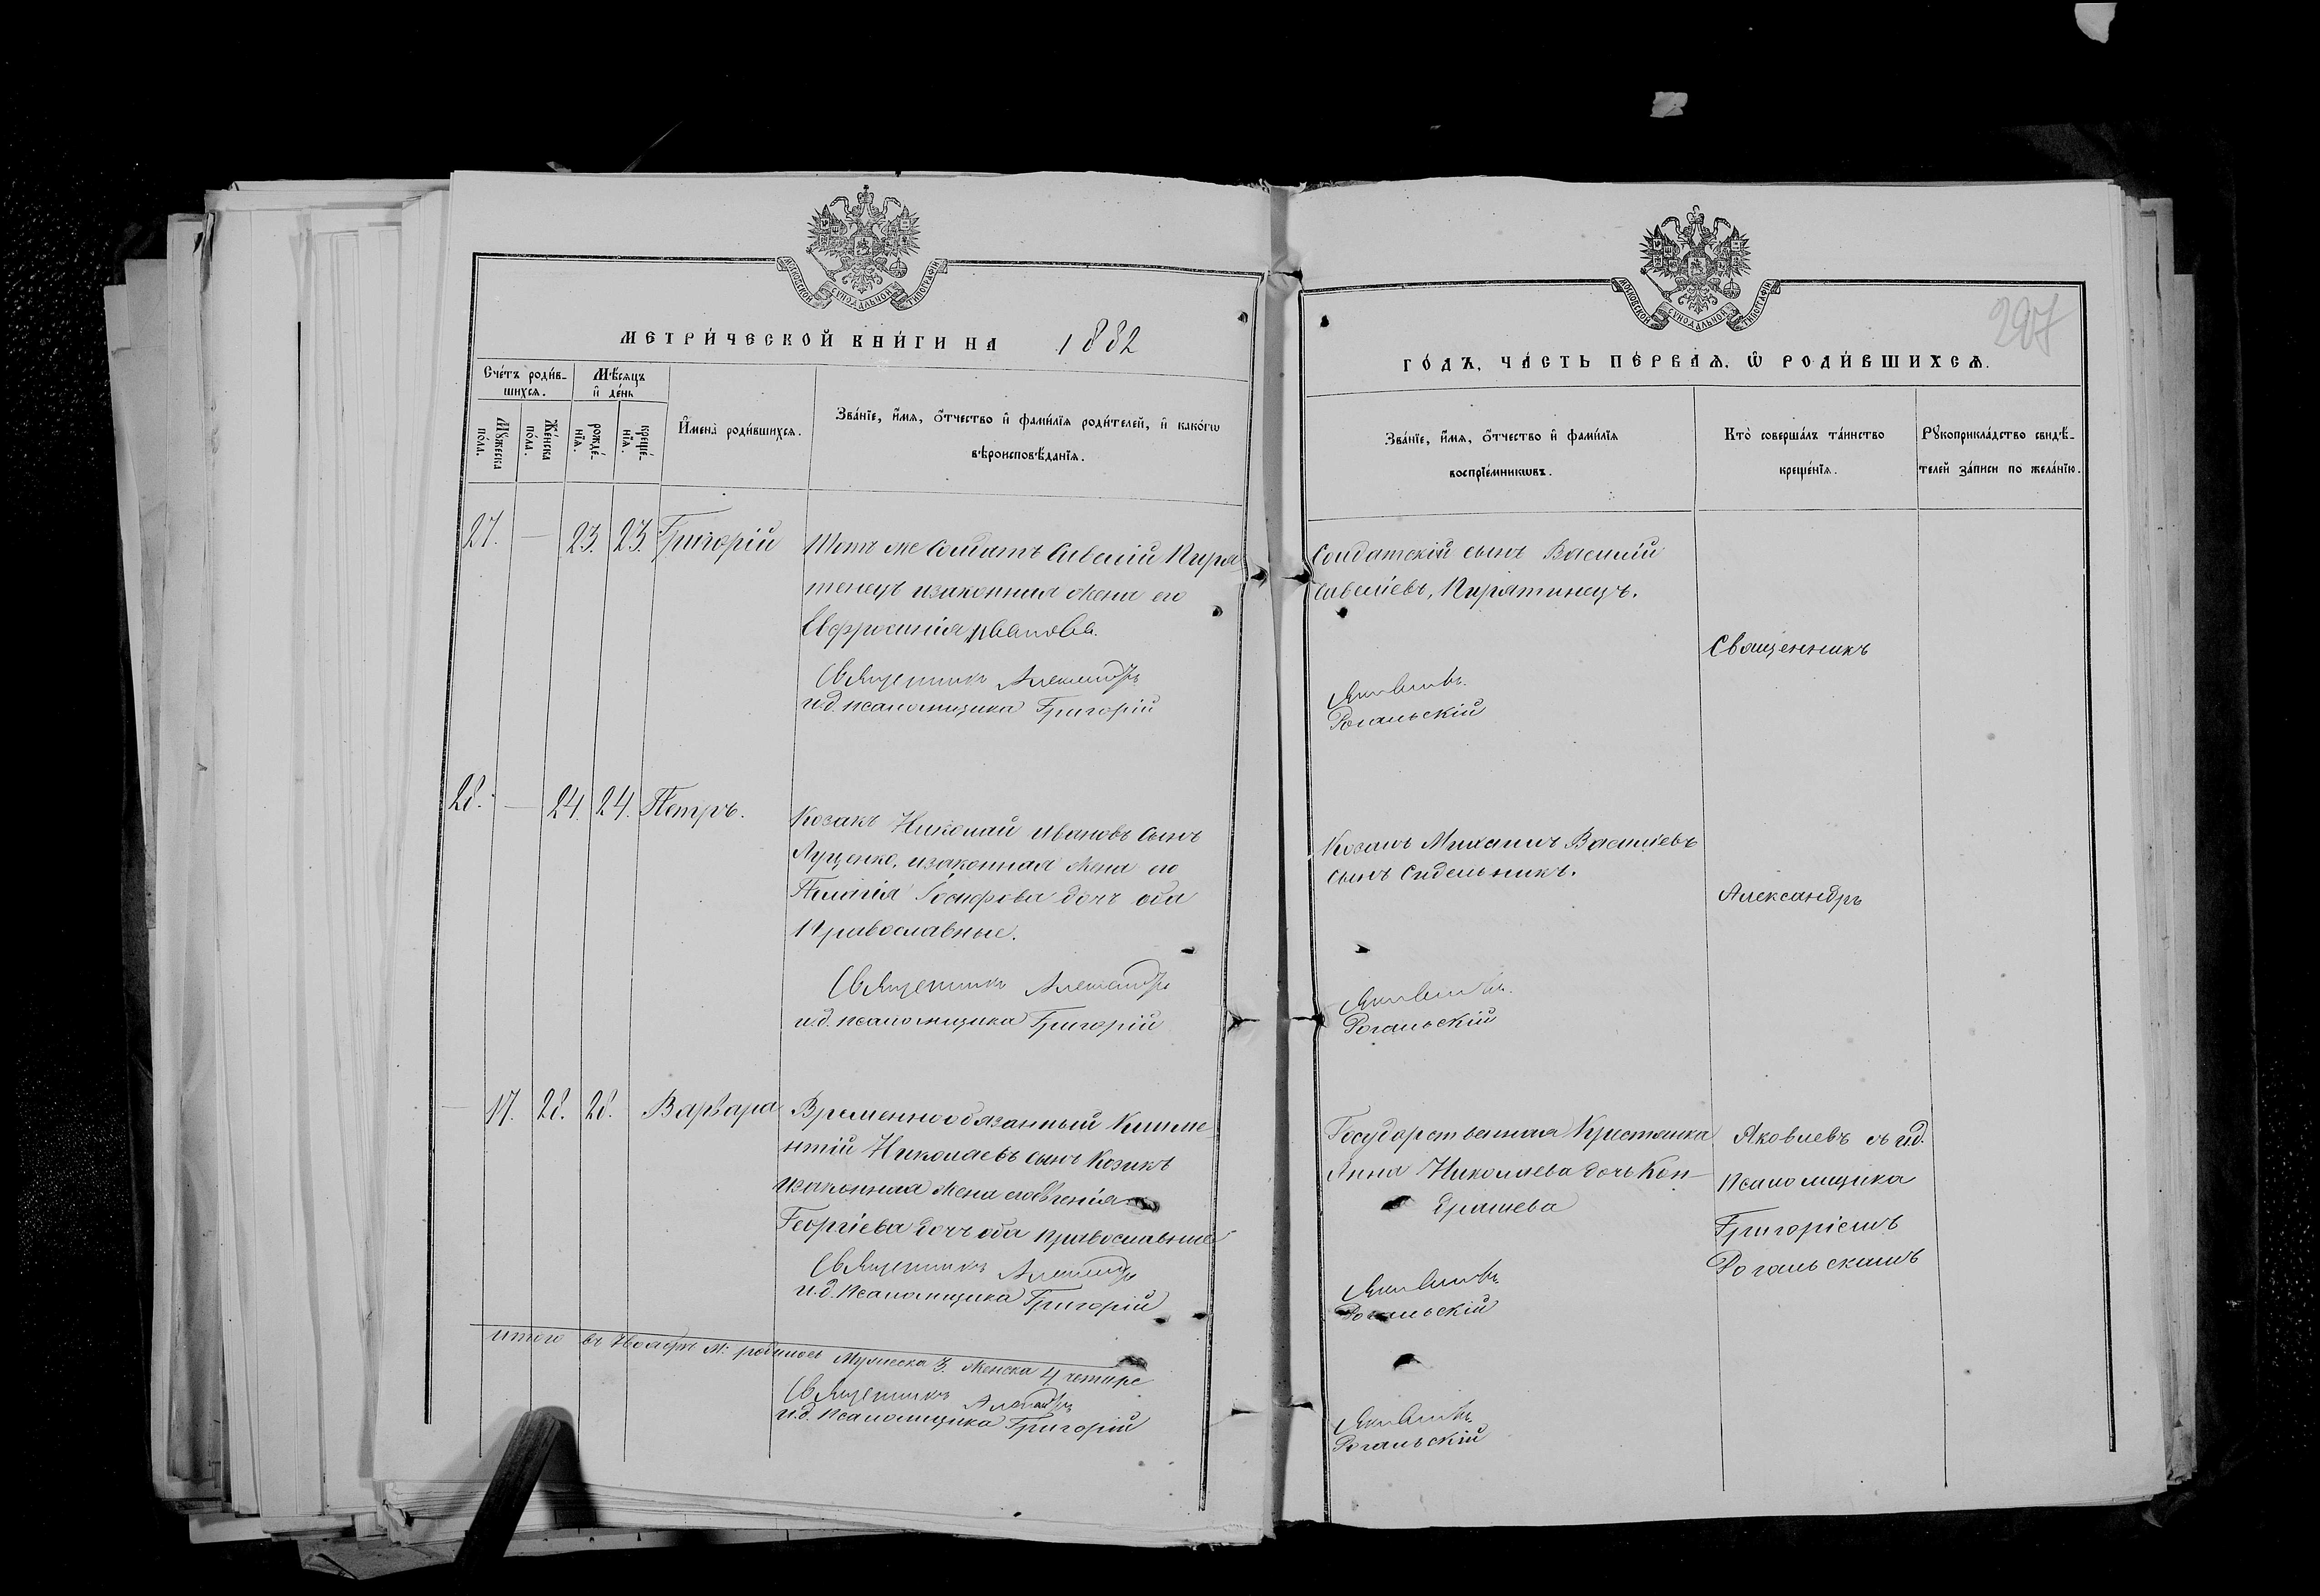 МОСКОВСКОЙ СУНОДАЛЬНОЙ ТИПОГРАФІИ
МЕТРИ́ЧЕСКОЙ КНИ́ГИ НА 1882
Сче́тъ роди́в-
шихся.
Мѣ́сяцъ
и҆ де́нь
Мꙋ́жеска
по́ла.
Же́нска
по́ла.
рожде́-
нїѧ.
креще́-
нїѧ.
И҆мена̀ роди́вшихсѧ.
Зва́нїе, и҆́мѧ, ѻ҆́тчество и҆ фами́лїѧ роди́телей, и҆ како́гѡ
вѣроисповѣ́данїѧ.
27. — 23. 23. Григорій
Тотъ же Солдатъ Савелій Пиря
тенецъ изаконная жена его
Евфросинія Иванова.
Священникъ Александръ
и.д. псаломщика Григорій
28. — 24. 24. Петръ.
Козакъ Николай Ивановъ сынъ
Луценко, изаконная жена его
Пелагія Іосифова дочь оба
Православные.
Священникъ Александръ
и.д. псаломщика Григорій
— 17. 28. 28. Варвара
Временнообязанный Климе
нтій Николаевъ сынъ Козикъ
изаконная жена его Евгенія
Георгіева дочь оба православные
Священникъ Александръ
и.д. псаломщика Григорій
итого въ Ноябрѣ М. родилось Мужеска 3. Женска 4 четыре
Священникъ Александръ
и.д. псаломщика Григорій
МОСКОВСКОЙ СУНОДАЛЬНОЙ ТИПОГРАФІИ
297
ГО́ДЪ, ЧА́СТЬ ПЕ́РВАѦ, Ѡ҆ РОДИ́ВШИХСѦ.
Зва́нїе, и҆́мѧ, ѻ҆́тчество и҆ фами́лїѧ
воспрїе́мникѡвъ.
Кто̀ соверша́лъ та́инство
креще́нїѧ.
Рꙋкоприкла́дство свидѣ́-
телей за́писи по жела́нїю.
Солдатскій сынъ Василій
Савеліевъ, Пирятинецъ.
Яковлевъ
Рогальскій
Козакъ Михаилъ Василіевъ
сынъ Сидельникъ.
Яковлевъ
Рогальскій
Государственная Крестянка
Анна Николаева дочь Кон-
Яковлевъ
Рогальскій
Яковлевъ
Рогальскій
Священникъ
Александръ
Яковлевъ съ и.д.
Псаломщика
Григоріемъ
Рогальскимъ